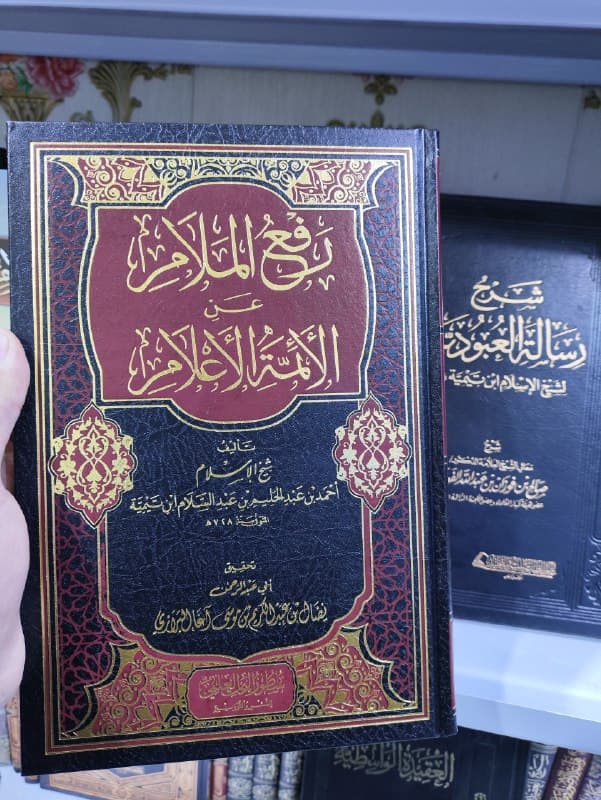 رَفْعُ المَلَامِ
عَنِ
الأَئِمَّةِ الأَعْلَامِ
تَأليفُ
شَيخُ الإِسْلَامِ
أحْمَد بن عَبْد الحَلِيم بن عَبْد السَّلَام ابن تَيْميَّة
المتوفى سنة: ٧٢٨هـ
تحقيق
أبي عبد الرحمن
نضال بن عبد الكريم بن موسى آغا البرازي
شَرْحُ
رِسَالَةُ العُبُودِيَّة
لِشَيْخِ الإِسْلَامِ ابن تَيْمِيَّة
شرح
العقيدة الواسطية